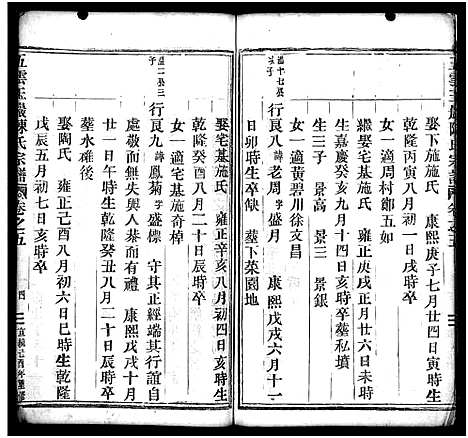 五雲玉巖陳氏宗譜 卷之五
娶下施施氏 康熙庚子七月廿四日寅時生
乾隆丙申八月初一日亥時卒
女一適周村鄭五如
繼娶宅基施氏 雍正庚戌正月廿六日未時
生嘉慶癸亥九月十四日亥時卒葬私墳
生三子 景高 景三 景銀
女一適黃碧川徐文昌
盛十七長子
行良八 諱老周 字盛月 康熙戊戌六月十一
日卯時生卒缺 葬下菜園地
娶宅基施氏 雍正辛亥八月初四日亥時生
乾隆癸酉八月二十日辰時卒
女一適宅基施奇棹
盛二長三子
行良九 諱鳳菊 字盛標 守其正經端其行誼自
處敬而無失與人恭而有禮 康熙戊戌十月
廿一日午時生乾隆癸丑八月二十日辰時卒
葬水碓後
娶陶氏 雍正己酉八月初六日巳時生乾隆
戊辰五月初七日亥時卒
五雲玉巖陳氏宗譜 卷之五
四
宣統己酉年重修